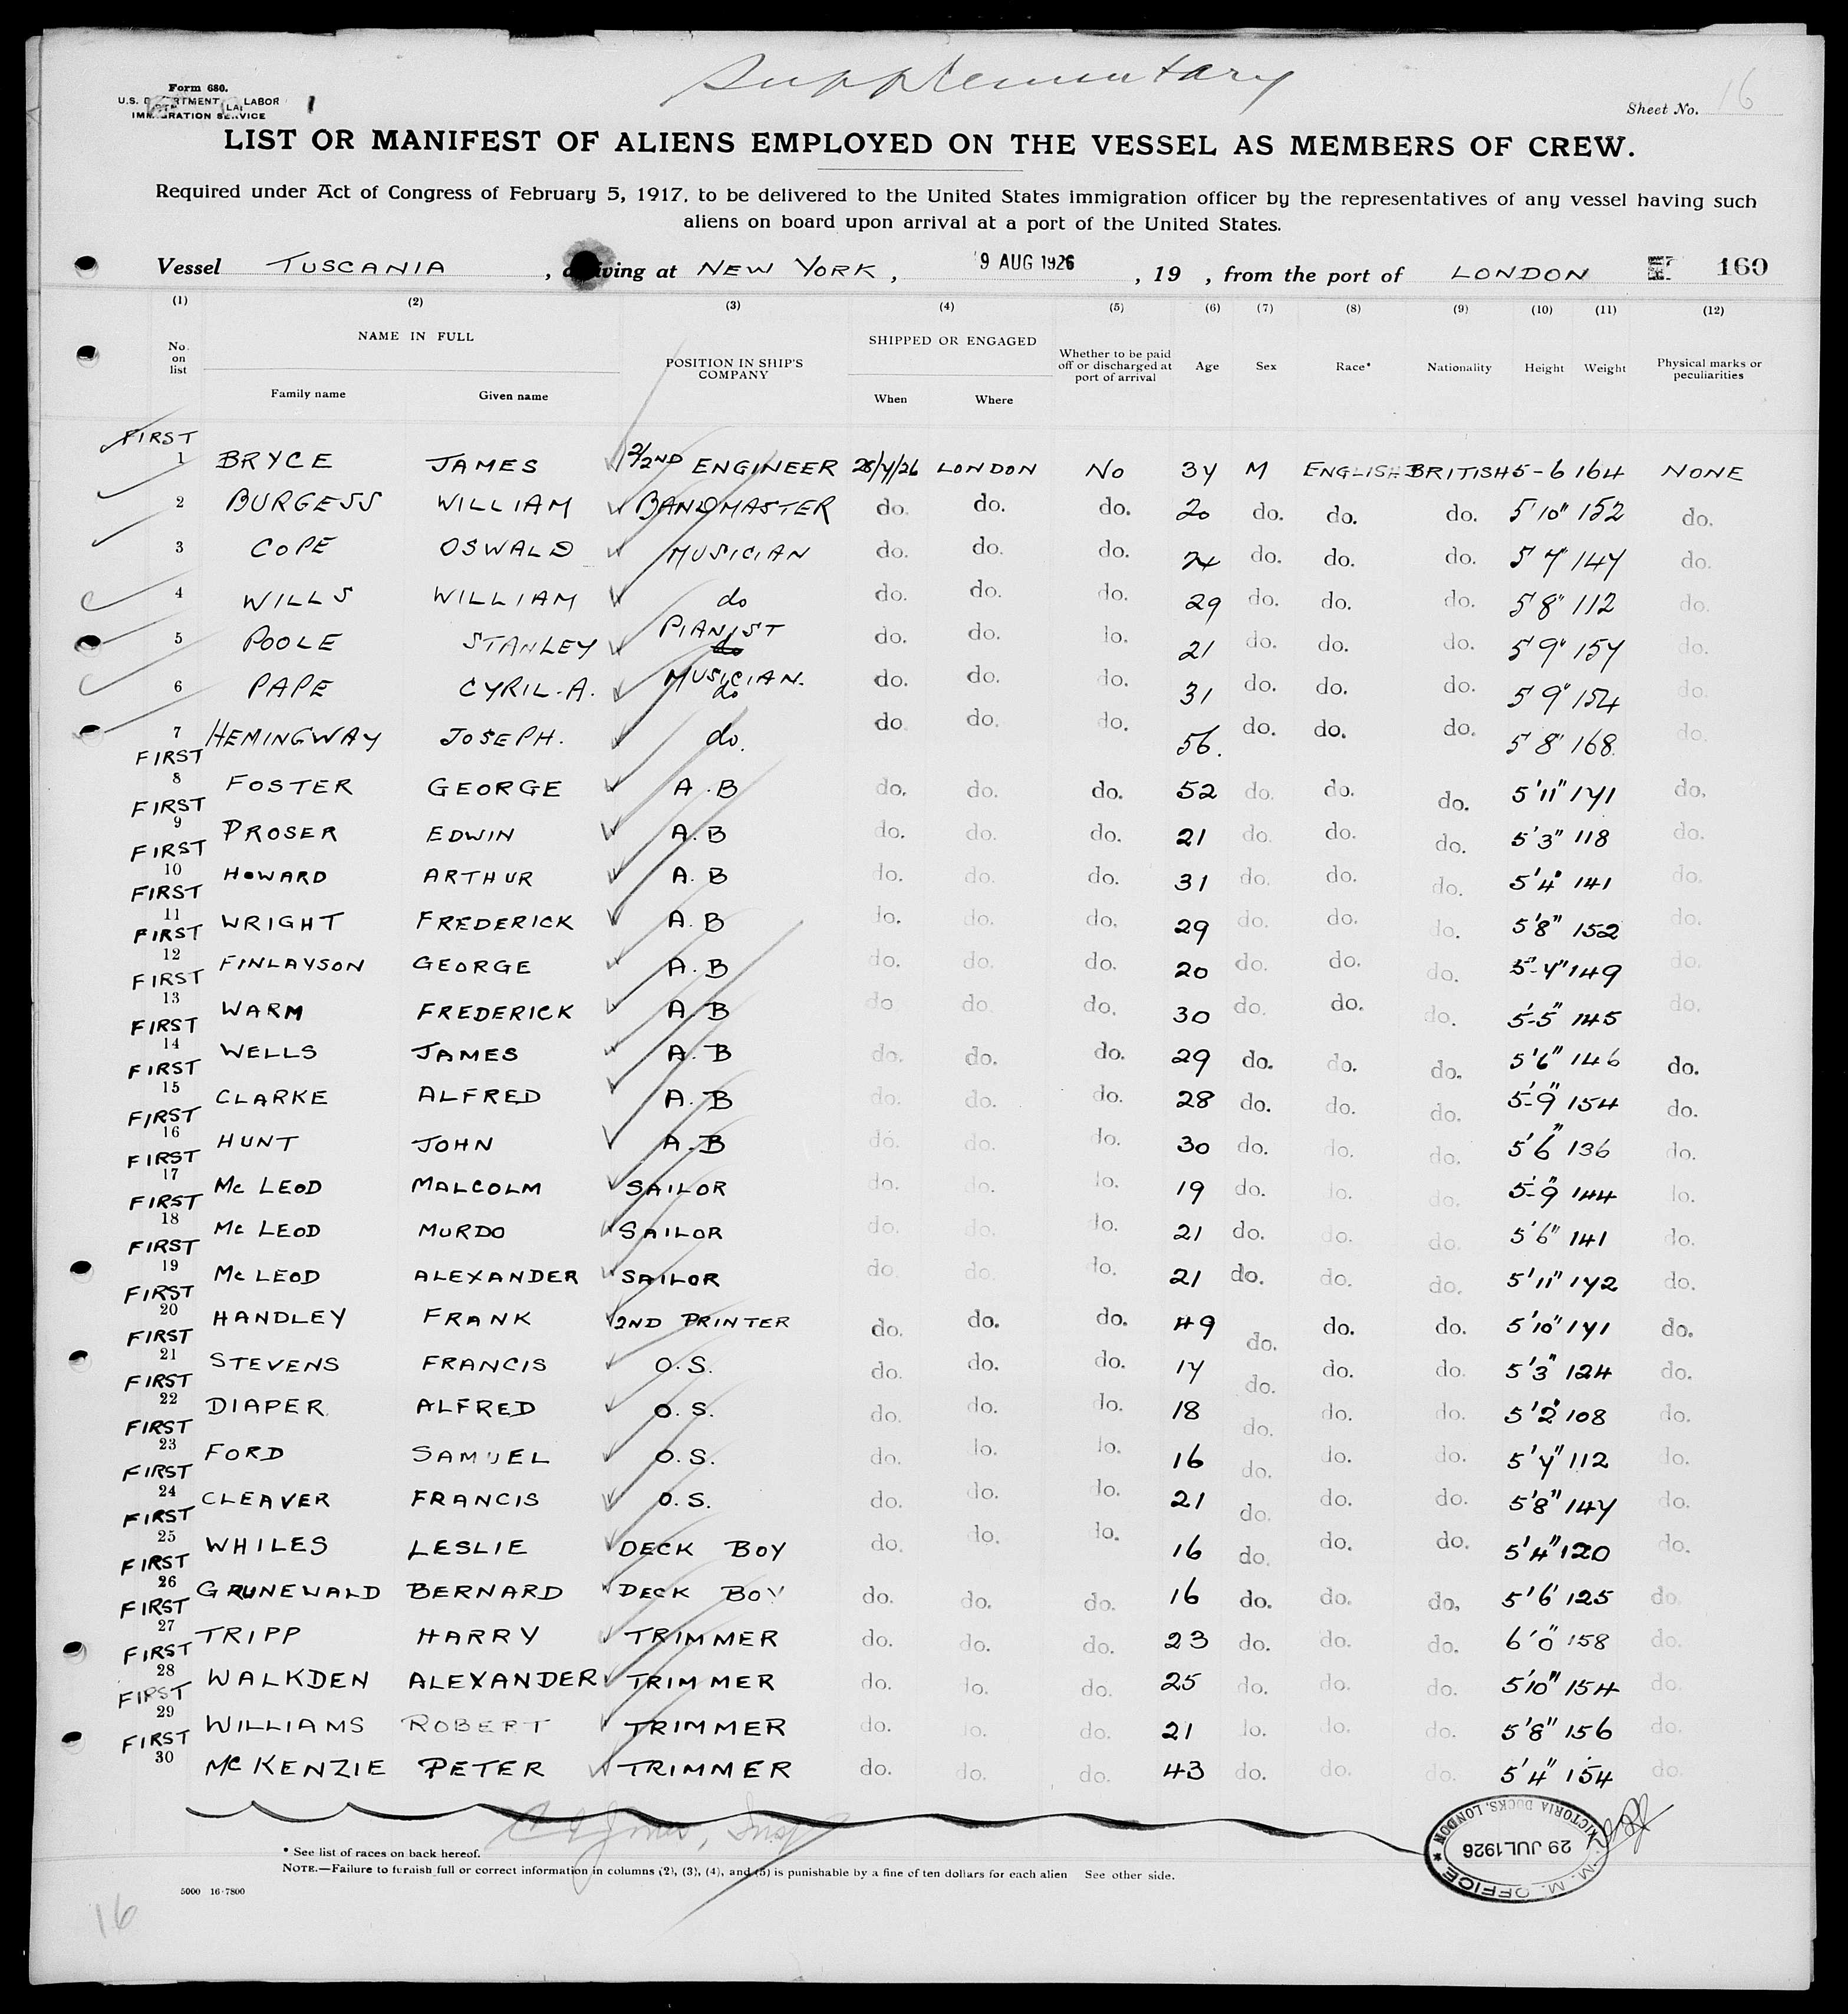 Supplementary
Form 680.
U.S. DEPARTMENT LABOR
IMMIGRATION SERVICE
Sheet No. 16
LIST OR MANIFEST OF ALIENS EMPLOYED ON THE VESSEL AS MEMBERS OF CREW.
Required under Act of Congress of February 5, 1917, to be delivered to the United States immigration officer by the representatives of any vessel having such
aliens on board upon arrival at a port of the United States.
Vessel TUSCANIA, arriving at NEW YORK, 9 AUG 1926, 19 , from the port of LONDON 160
(1) (2) (3) (4) (5) (6) (7) (8) (9) (10) (11) (12)
No. on list NAME IN FULL Family name Given name POSITION IN SHIP'S COMPANY SHIPPED OR ENGAGED When Where Whether to be paid off or discharged at port of arrival Age Sex Race* Nationality Height Weight Physical marks or peculiarities
FIRST
1 BRYCE JAMES 2/2ND ENGINEER 28/7/26 LONDON NO 37 M ENGLISH BRITISH 5-6 164 NONE
2 BURGESS WILLIAM BANDMASTER do. do. do. 20 do. do. do. 5'10" 152 do.
3 COPE OSWALD MUSICIAN do. do. do. 24 do. do. do. 5'7" 147 do.
4 WILLS WILLIAM do do. do. do. 29 do. do. do. 5'8" 112 do.
5 POOLE STANLEY PIANIST do. do. do. 21 do. do. do. 5'9" 157 do.
6 PAPE CYRIL.A. MUSICIAN. do do. do. do. 31 do. do. do. 5'9" 154 do.
7 HEMINGWAY JOSEPH. do. do. do. do. 56. do. do. do. 5'8" 168. do.
FIRST
8 FOSTER GEORGE A.B do. do. do. 52 do. do. do. 5'11" 171 do.
FIRST
9 PROSER EDWIN A.B do. do. do. 21 do. do. do. 5'3" 118 do.
FIRST
10 HOWARD ARTHUR A.B do. do. do. 31 do. do. do. 5'4" 141 do.
FIRST
11 WRIGHT FREDERICK A.B do. do. do. 29 do. do. do. 5'8" 152 do.
FIRST
12 FINLAYSON GEORGE A.B do. do. do. 20 do. do. do. 5'-7" 149 do.
FIRST
13 WARM FREDERICK A.B do do do. 30 do. do. do. 5'-5" 145 do.
FIRST
14 WELLS JAMES A.B do. do. do. 29 do. do. do. 5'6" 146 do.
FIRST
15 CLARKE ALFRED A.B do. do. do. 28 do. do. do. 5'-9" 154 do.
FIRST
16 HUNT JOHN A.B do. do. do. 30 do. do. do. 5'6" 136 do.
FIRST
17 Mc LEOD MALCOLM SAILOR do. do. do. 19 do. do. do. 5'-9" 144 do.
FIRST
18 Mc LEOD MURDO SAILOR do. do. do. 21 do. do. do. 5'6" 141 do.
FIRST
19 Mc LEOD ALEXANDER SAILOR do. do. do. 21 do. do. do. 5'11" 172 do.
FIRST
20 HANDLEY FRANK 2ND PRINTER do. do. do. 49 do. do. do. 5'10" 171 do.
FIRST
21 STEVENS FRANCIS O.S. do. do. do. 17 do. do. do. 5'3" 124 do.
FIRST
22 DIAPER ALFRED O.S. do. do. do. 18 do. do. do. 5'2" 108 do.
FIRST
23 FORD SAMUEL O.S. do. do. do. 16 do. do. do. 5'7" 112 do.
FIRST
24 CLEAVER FRANCIS O.S. do. do. do. 21 do. do. do. 5'8" 147 do.
FIRST
25 WHILES LESLIE DECK BOY do. do. do. 16 do. do. do. 5'4" 120 do.
FIRST
26 GRUNEWALD BERNARD DECK BOY do. do. do. 16 do. do. do. 5'6 125 do.
FIRST
27 TRIPP HARRY TRIMMER do. do. do. 23 do. do. do. 6'0" 158 do.
FIRST
28 WALKDEN ALEXANDER TRIMMER do. do. do. 25 do. do. do. 5'10" 154 do.
FIRST
29 WILLIAMS ROBERT TRIMMER do. do. do. 21 do. do. do. 5'8" 156 do.
FIRST
30 McKENZIE PETER TRIMMER do. do. do. 43 do. do. do. 5'4" 154 do.
Jones, Insp
M.M. OFFICE * VICTORIA DOCKS, LONDON
29 JUL 1926
* See list of races on back hereof.
NOTE.—Failure to furnish full or correct information in columns (2), (3), (4), and (5) is punishable by a fine of ten dollars for each alien See other side.
5000 16-7800
16